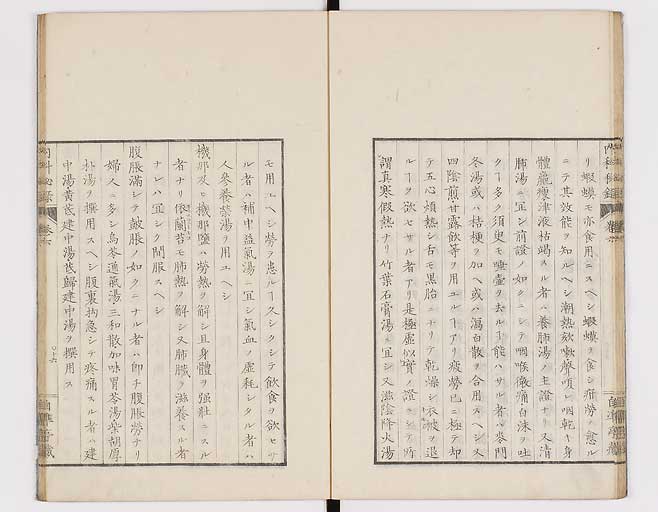 リ蝦蟆モ亦食用ニスヘシ蝦蟆ヲ食シ疳勞ヲ愈ル
ニテ其效能ヲ知ルヘシ潮熱欬嗽聲唖シ咽乾キ身
體羸痩津液枯竭スル者ハ養肺湯ノ主證ナリ又清
肺湯ニ宜シ前證ノ如クニシテ咽喉微痛白沫ヲ吐
クー多ク須臾モ唾壷ヲ去ルー能ハサル者ハ麥門
冬湯或ハ桔梗ヲ加ヘ或ハ瀉白散ヲ合用スヘシ又
四陰煎甘露飲等ヲ用エルーアリ疲勞已ニ極テ却
テ五心煩熱シ舌モ黒胎ニナリテ乾燥シ衣被ヲ退
ルーヲ欲セサル者アリ是極虚似實ノ證ニシテ所
謂真寒假熱ナリ竹葉石膏湯ニ宜シ又滋陰降火湯
モ用エヘシ勞ヲ患ルー久シクシテ飲食ヲ欲セサ
ル者ハ補中益氣湯ニ宜シ氣血ノ虚耗シタル者ハ
人參養榮湯ヲ用エヘシ
機那及ヒ機那鹽ハ勞熱ヲ解シ且身體ヲ强壯ニスル
者ナリ依蘭苔モ肺熱ヲ解シ又肺臟ヲ滋養スル者
ナレハ宜シク間服スヘシ
腹脹滿シテ皷脹ノ如クニナル者ハ卽チ腹脹勞ナリ
婦人ニ多シ烏苓通氣湯三和散加味胃苓湯柴胡厚
朴湯ヲ撰用スヘシ腹裏拘急シテ疼痛スル者ハ建
中湯黄芪建中湯芪歸建中湯ヲ撰用ス
内科秘錄
卷六